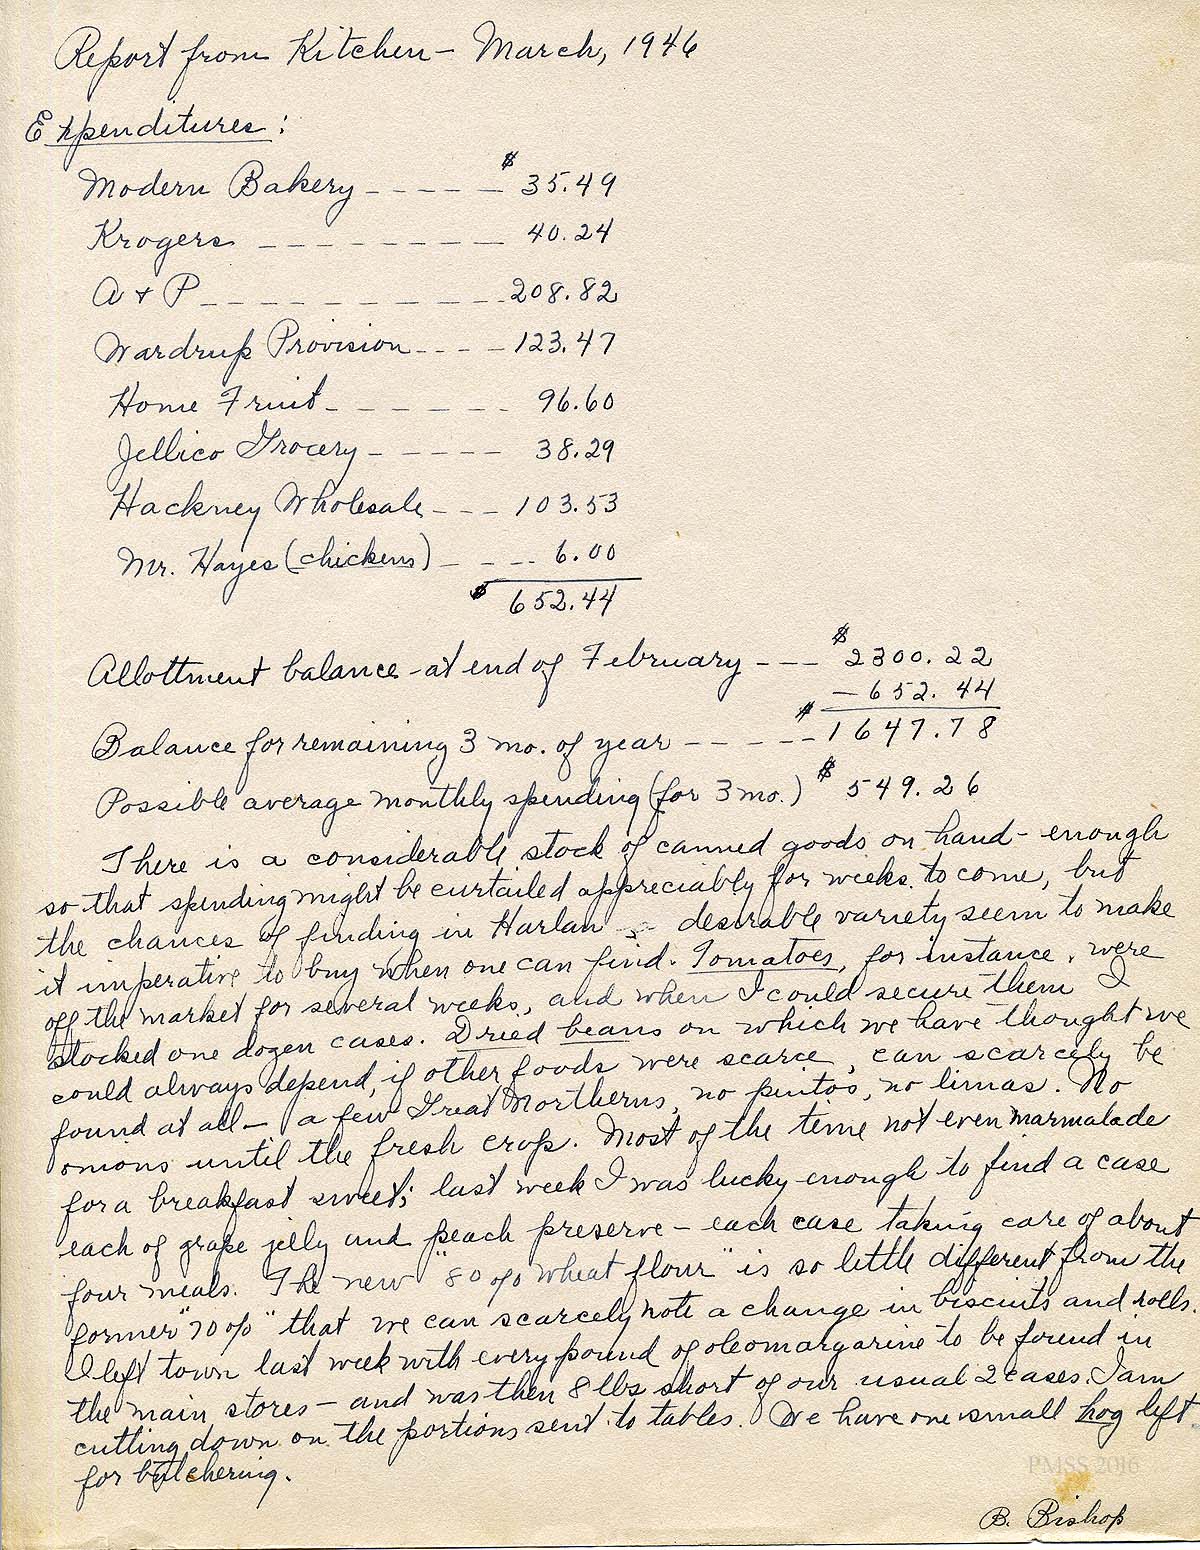 Report from Kitchen - March, 1946
Expenditures:
Modern Bakery - - - - - $ 35.49
Krogers - - - - - - - - - 40.24
A + P - - - - - - - - - - - 208.82
Wardrup Provision - - - - 123.47
Home Fruit - - - - - - - 96.60
Jellico Grocery - - - - - 38.29
Hackney Wholesale - - - 103.53
Mr. Hayes (chickens) - - - - 6.00
$ 652.44
Allottment balance at end of February - - - $2300.22
- 652.44
Balance for remaining 3 mo. of year - - - - - $1647.78
Possible average monthly spending (for 3 mo.) $ 549.26
There is a considerable stock of canned goods on hand - enough
so that spending might be curtailed appreciably for weeks to come, but
the chances of finding in Harlan desirable variety seem to make
it imperative to buy when one can find. Tomatoes, for instance, were
off the market for several weeks, and when I could secure them I
stocked one dozen cases. Dried beans on which we have thought we
could always depend, if other foods were scarce, can scarcely be
found at all - a few Great Northerns, no pintos, no limas. No
onions until the fresh crop. Most of the time not even marmalade
for a breakfast sweet; last week I was lucky enough to find a case
each of grape jelly and peach preserve - each case taking care of about
four meals. The new "80% wheat flour" is so little different from the
former "70%" that we can scarcely note a change in biscuits and rolls.
I left town last week with every pound of oleomargarine to be found in
the main stores - and was then 8 lbs short of our usual 2 cases. I am
cutting down on the portions sent to tables. We have one small hog left
for butchering.
PMSS 2016
B. Bishop